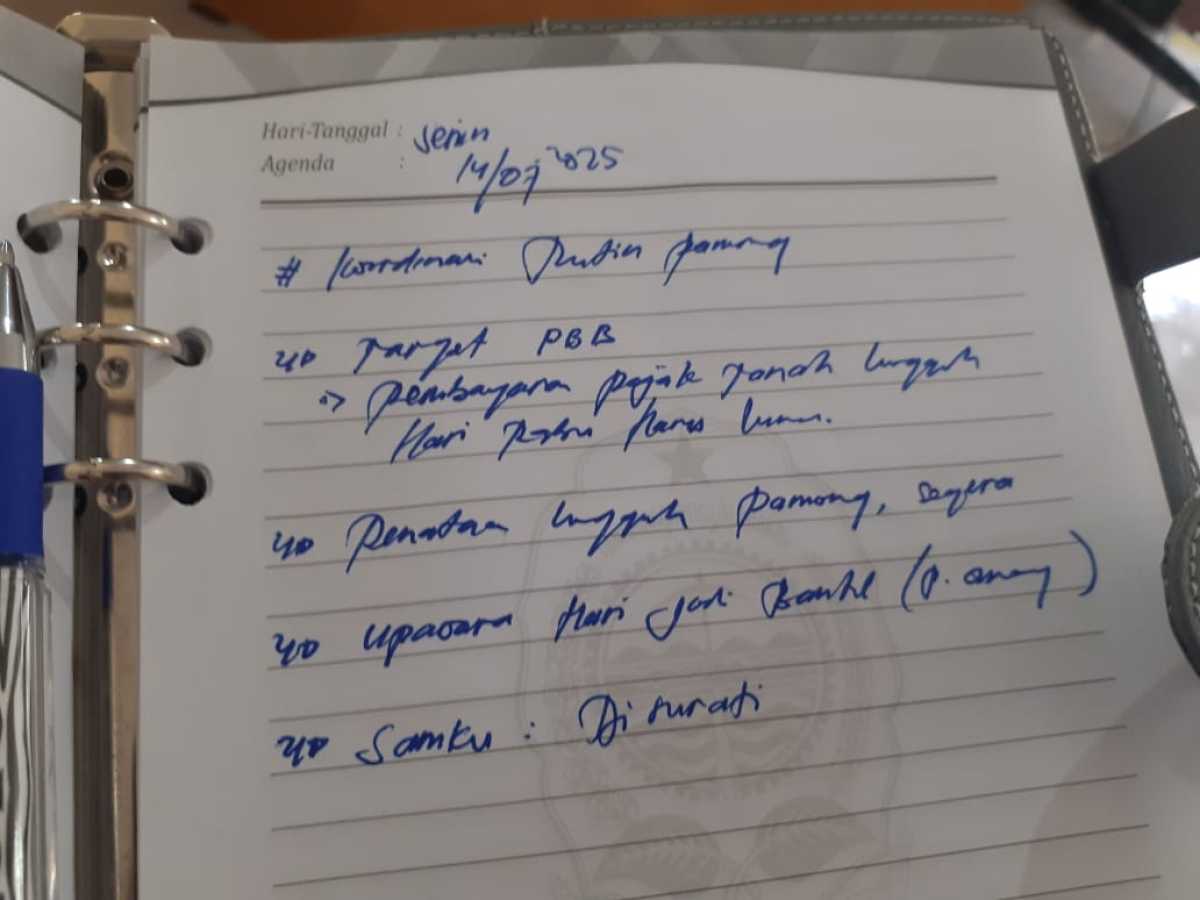 Hari-Tanggal : Senin
Agenda : 14/07 2025
# Koordinasi Rutin pamong
Target PBB
=> Pembayaran Pajak Tanah lungguh
Hari Rabu Harus lunas.
Penataan lungguh Pamong, segera
Upacara Hari Jadi Bantul (P. Anang)
Samku : Disurati